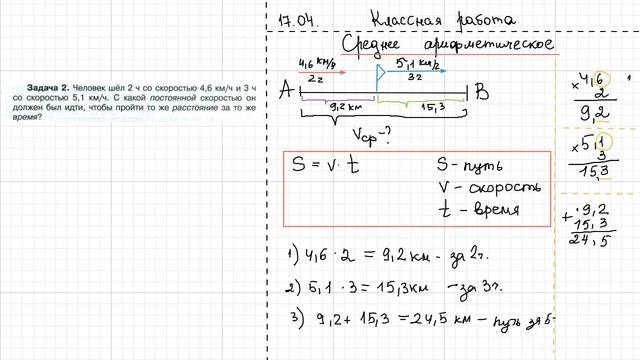 Задача 2. Человек шёл 2 ч со скоростью 4,6 км/ч и 3 ч
со скоростью 5,1 км/ч. С какой постоянной скоростью он
должен был идти, чтобы пройти то же расстояние за то же
время?
17.04. Классная работа
Среднее арифметическое
4,6 км/ч 5,1 км/ч
2ч 3ч
A B
9,2 км 15,3
Vср-?
S = v · t S - путь
v - скорость
t - время
1) 4,6 · 2 = 9,2 км - за 2ч.
2) 5,1 · 3 = 15,3км - за 3ч.
3) 9,2 + 15,3 = 24,5 км - путь за 5
×4,6
2
9,2
×5,1
3
15,3
+9,2
15,3
24,5